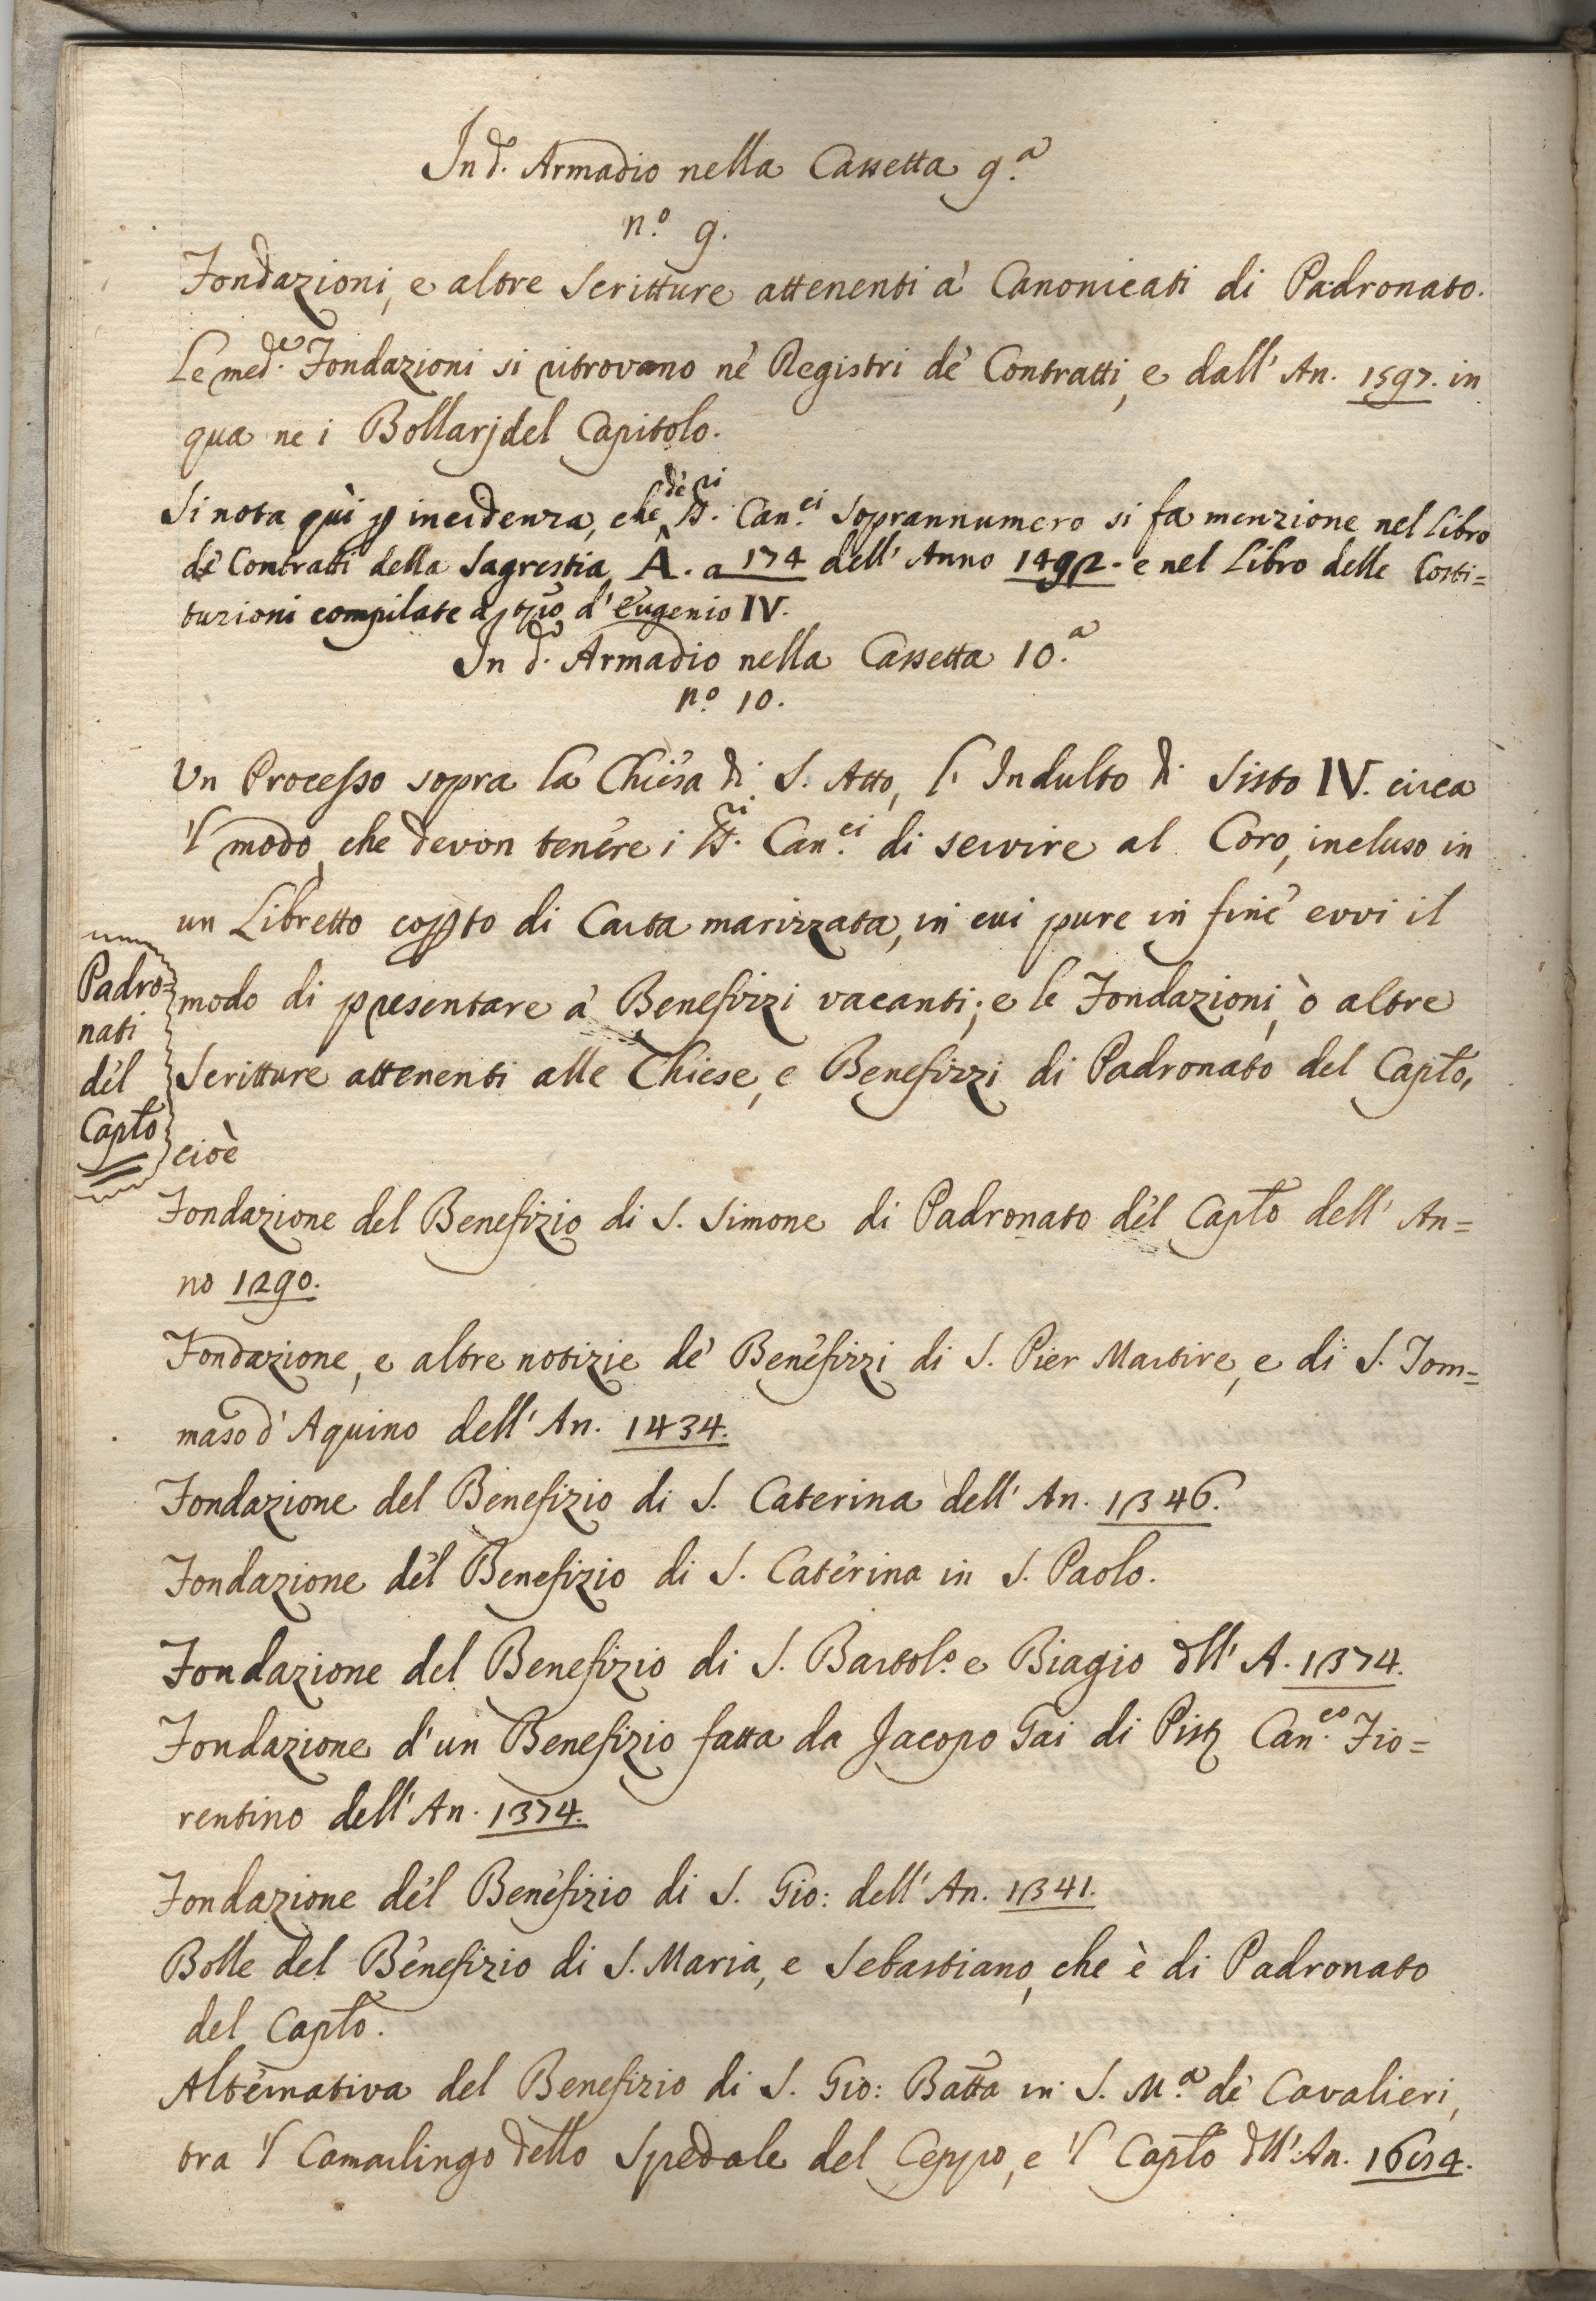 In d.º Armadio nella Cassetta 9.ª
n.º 9.
Fondazioni, e altre Scritture attenenti a' Canonicati di Padronato.
Le med.e Fondazioni si ritrovano ne' Registri de' Contratti, e dall' An. 1597. in
qua ne i Bollarj del Capitolo.
Si nota quì p incidenza, che de' SS.ri Can.ci Soprannumero si fa menzione nel Libro
de' Contratti della Sagrestia A. a 174 dell' Anno 1492. e nel Libro delle Costi=
tuzioni compilate a tpõ d' Eugenio IV.
In d.º Armadio nella Cassetta 10.ª
n.º 10.
Un Processo sopra la Chiesa di S. Atto, l' Indulto di Sisto IV. circa
'l modo, che devon tenere i SS.ri Can.ci di servire al Coro, incluso in
un Libretto copto di Carta marizzata, in cui pure in fine evvi il
modo di presentare a' Benefizzi vacanti; e le Fondazioni, ò altre
Scritture attenenti alle Chiese, e Benefizzi di Padronato del Capto,
cioè
Padro=
nati
del
Capto
Fondazione del Benefizio di S. Simone di Padronato del Capto dell' An=
no 1290.
Fondazione, e altre notizie de' Benefizzi di S. Pier Martire, e di S. Tom=
maso d' Aquino dell' An. 1434.
Fondazione del Benefizio di S. Caterina dell' An. 1346.
Fondazione del Benefizio di S. Caterina in S. Paolo.
Fondazione del Benefizio di S. Bartol.º e Biagio dll' A. 1374.
Fondazione d' un Benefizio fatta da Jacopo Gai di Pist Can.co Fio=
rentino dell' An. 1374.
Fondazione del Benefizio di S. Gio: dell' An. 1341.
Bolle del Benefizio di S. Maria, e Sebastiano, che è di Padronato
del Capto.
Alternativa del Benefizio di S. Gio: Batta in S. M.ª de' Cavalieri,
tra 'l Camarlingo dello Spedale del Ceppo, e 'l Capto dll' An.